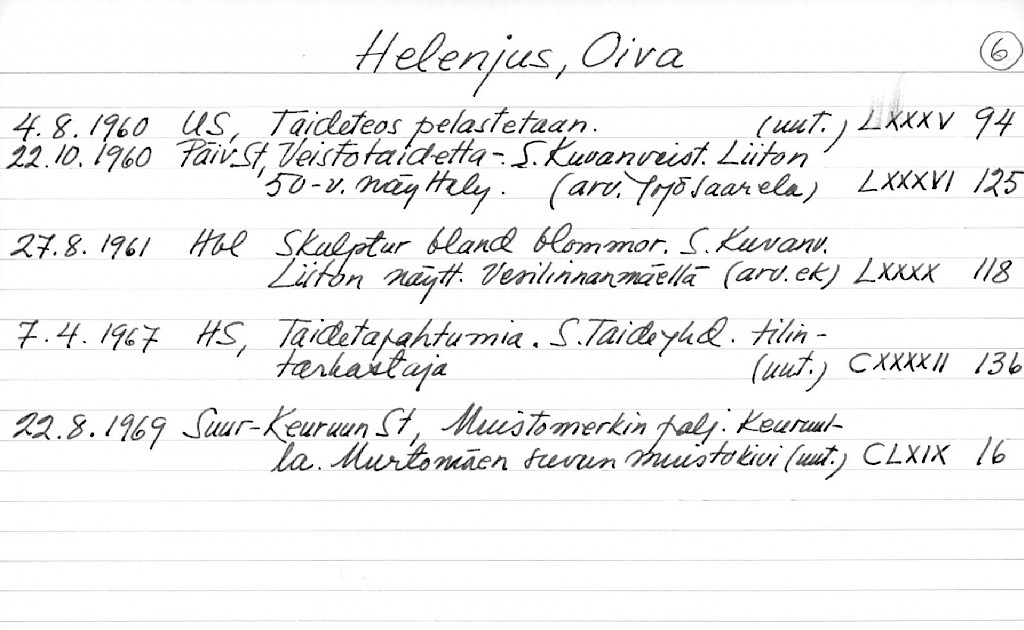 Helenius, Oiva 6
4.8.1960 US, Taideteos pelastetaan. (uut.) LXXXV 94
22.10.1960 Päiv.St, Veistotaidetta - S. Kuvanveist. Liiton
50-v. näyttely. (arv. Yrjö Saarela) LXXXVI 125
27.8.1961 Hbl Skulptur bland blommor. S. Kuvanv.
Liiton näytt. Vesilinnanmäellä (arv. ek) LXXXX 118
7.4.1967 HS, Taidetapahtumia. S. Taideyhd. tilin-
tarkastaja (uut.) CXXXXII 136
22.8.1969 Suur-Keuruun St, Muistomerkin palj. Keuruul-
la. Murtomäen suvun muistokivi (uut.) CLXIX 16